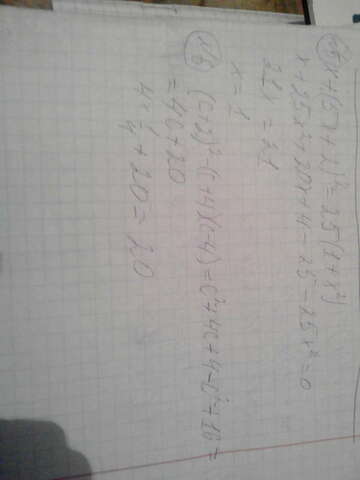 x+(5x+2)²=25(1+x²)
x+25x²+20x+4-25-25x²=0
21x=21
x=1
№6 (c+2)²-(c+4)(c-4)=c²+4c+4-c²+16=
=4c+20